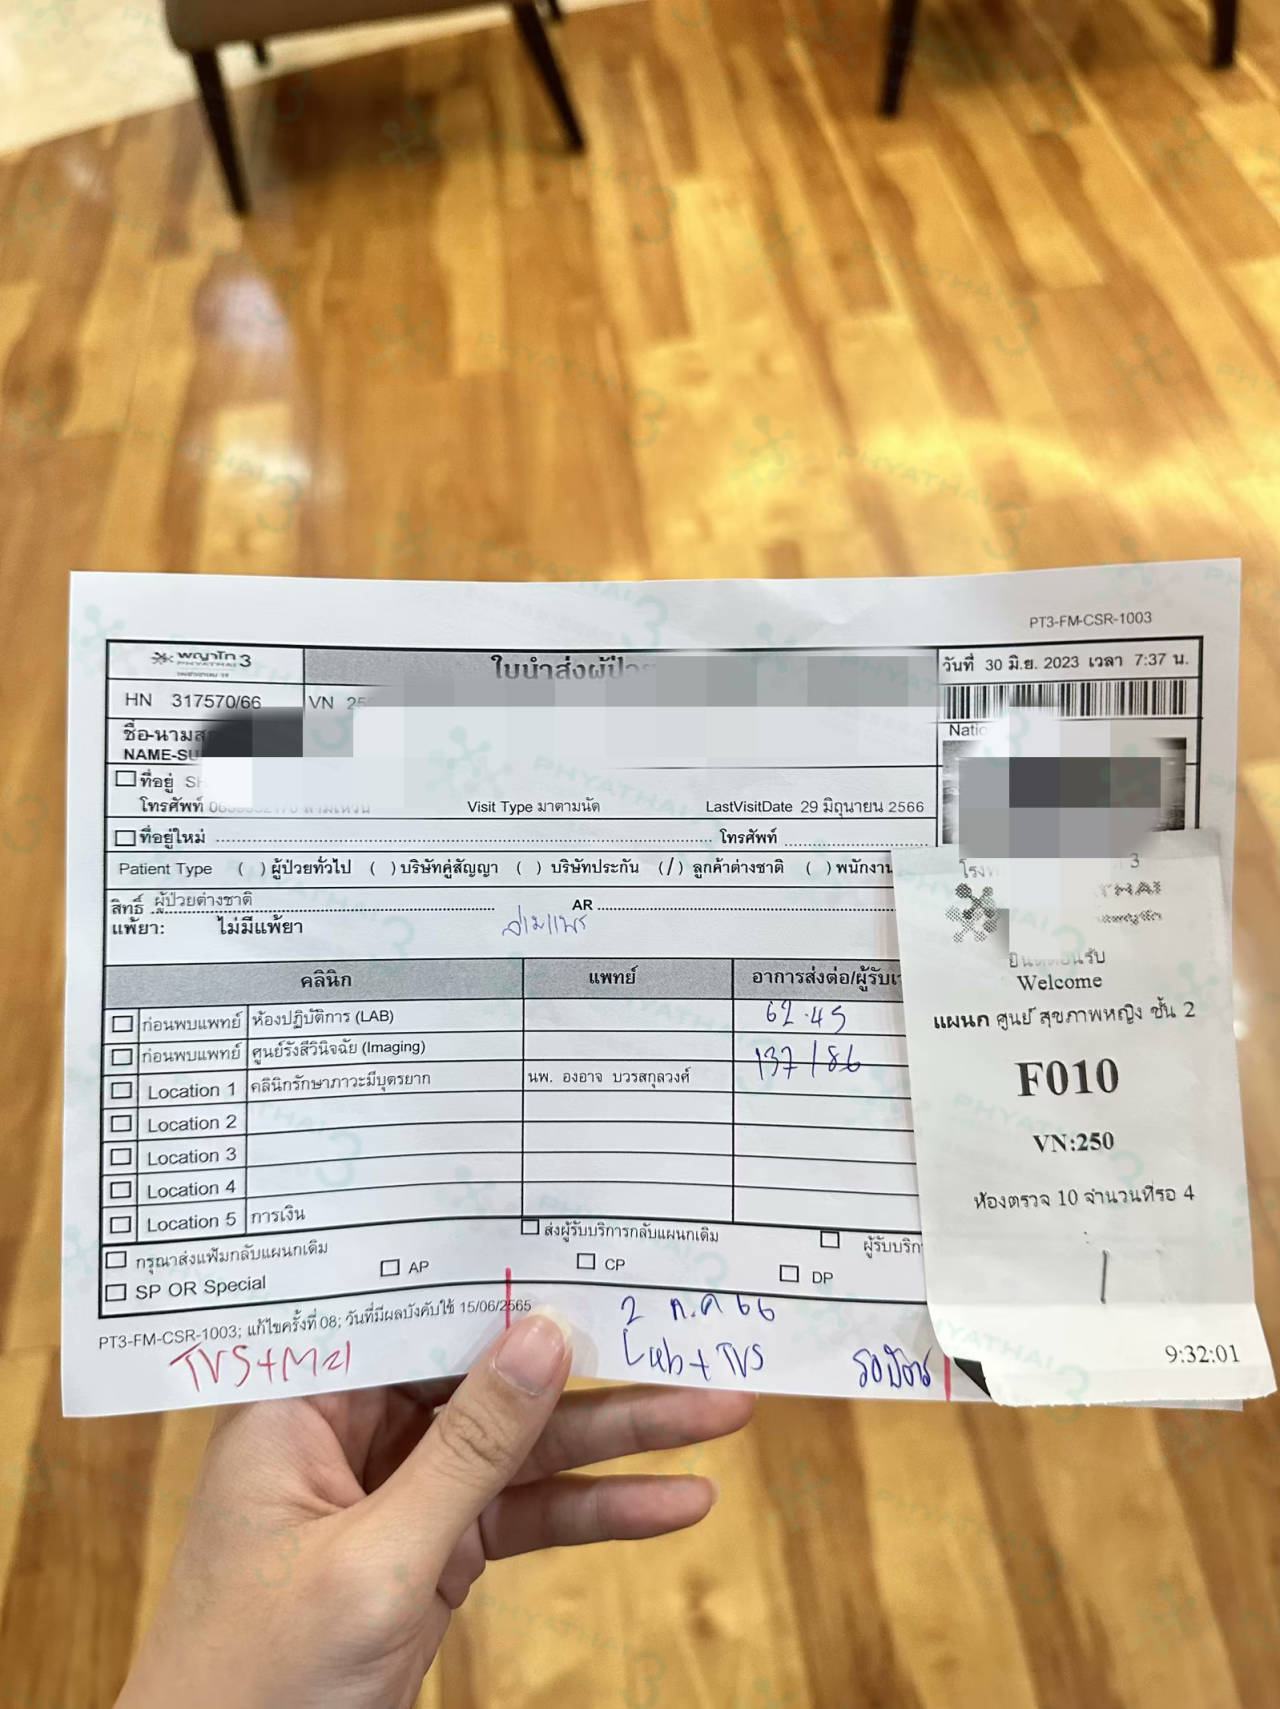 PT3-FM-CSR-1003
พญาไท 3
PHYATHAI 3
ใบนำส่งผู้ป่วย
วันที่ 30 มิ.ย. 2023 เวลา 7:37 น.
HN 317570/66
VN 25
ชื่อ-นามส
NAME-SU
Natio
ที่อยู่ SH
โทรศัพท์
Visit Type มาตามนัด
LastVisitDate 29 มิถุนายน 2566
ที่อยู่ใหม่ โทรศัพท์
Patient Type ( ) ผู้ป่วยทั่วไป ( ) บริษัทคู่สัญญา ( ) บริษัทประกัน (/) ลูกค้าต่างชาติ ( ) พนักงาน
สิทธิ์ ผู้ป่วยต่างชาติ AR
แพ้ยา: ไม่มีแพ้ยา
ล่ามแพร
คลินิก แพทย์ อาการส่งต่อ/ผู้รับเ
ก่อนพบแพทย์ ห้องปฏิบัติการ (LAB) 62.45
ก่อนพบแพทย์ ศูนย์รังสีวินิจฉัย (Imaging) 137/86
Location 1 คลินิกรักษาภาวะมีบุตรยาก นพ. องอาจ บวรสกุลวงศ์
Location 2
Location 3
Location 4
Location 5 การเงิน
กรุณาส่งแฟ้มกลับแผนกเดิม ส่งผู้รับบริการกลับแผนกเดิม ผู้รับบริก
SP OR Special AP CP DP
PT3-FM-CSR-1003; แก้ไขครั้งที่ 08; วันที่มีผลบังคับใช้ 15/06/2565
2 ก.ค 66
TVS+
Lab + TVS
รอบัตร
โรงพ 3
THAI
ยินดีต้อนรับ
Welcome
แผนก ศูนย์ สุขภาพหญิง ชั้น 2
F010
VN:250
ห้องตรวจ 10 จำนวนที่รอ 4
9:32:01